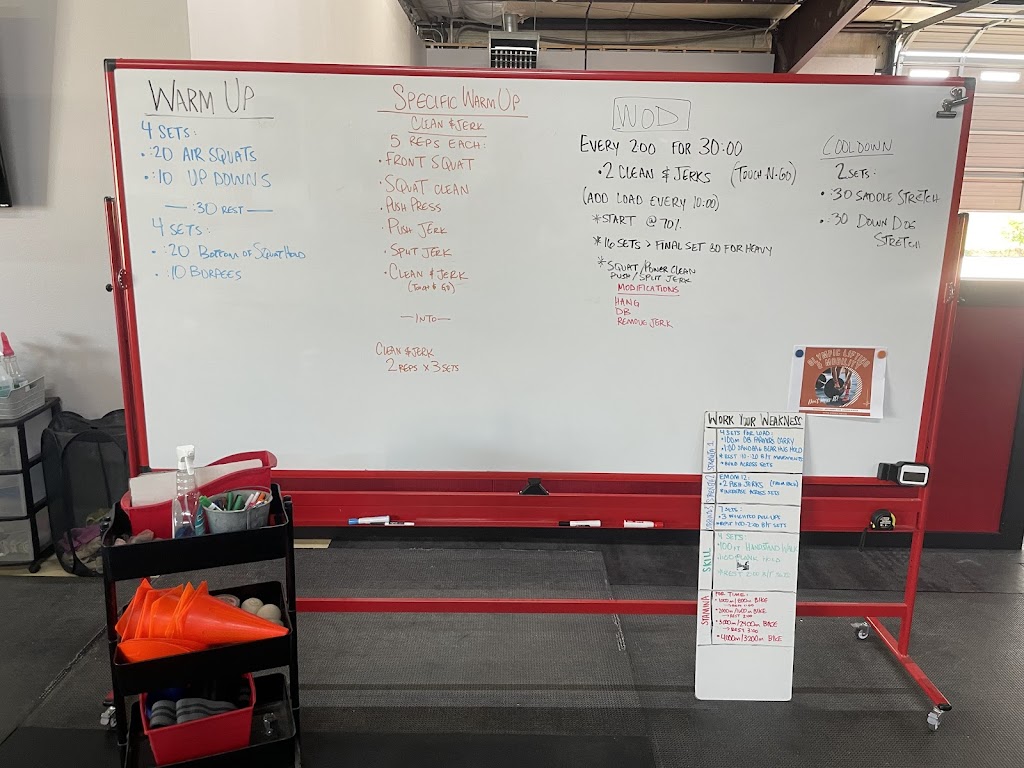 WARM UP
4 SETS:
• :20 AIR SQUATS
• :10 UP DOWNS
— :30 REST —
4 SETS:
• :20 BOTTOM OF SQUAT HOLD
• :10 BURPEES
SPECIFIC WARM UP
CLEAN & JERK
5 REPS EACH:
• FRONT SQUAT
• SQUAT CLEAN
• PUSH PRESS
• PUSH JERK
• SPLIT JERK
• CLEAN & JERK
(TOUCH & GO)
— INTO —
CLEAN & JERK
2 REPS X 3 SETS
WOD
EVERY 2:00 FOR 30:00
• 2 CLEAN & JERKS (TOUCH-N-GO)
(ADD LOAD EVERY 10:00)
* START @ 70%
* 16 SETS > FINAL SET 30 FOR HEAVY
* SQUAT/POWER CLEAN
PUSH/SPLIT JERK
MODIFICATIONS
HANG
DB
REMOVE JERK
COOLDOWN
2 SETS:
• :30 SADDLE STRETCH
• :30 DOWN DOG
STRETCH
OLYMPIC LIFTING
& MOBILITY
WORK YOUR WEAKNESS
STRENGTH 1
4 SETS FOR LOAD:
• 100m DB FARMERS CARRY
• 1:00 SANDBAG BEARHUG HOLD
* REST 1:0-2:0 B/T MOVEMENTS
* BUILD ACROSS SETS
EMOM 12:
• 2 PUSH JERKS (FROM RACK)
* INCREASE ACROSS SETS
7 SETS:
• 3 WEIGHTED PULL-UPS
* REST 1:00-2:00 B/T SETS
SKILL
4 SETS:
• 100 FT HANDSTAND WALK
HOLD
STAMINA
FOR TIME:
• 1000m/800m BIKE
• 2000m/1600m BIKE
→ REST 2:00
• 3000m/2400m BIKE
→ REST 3:00
• 4000m/3200m BIKE